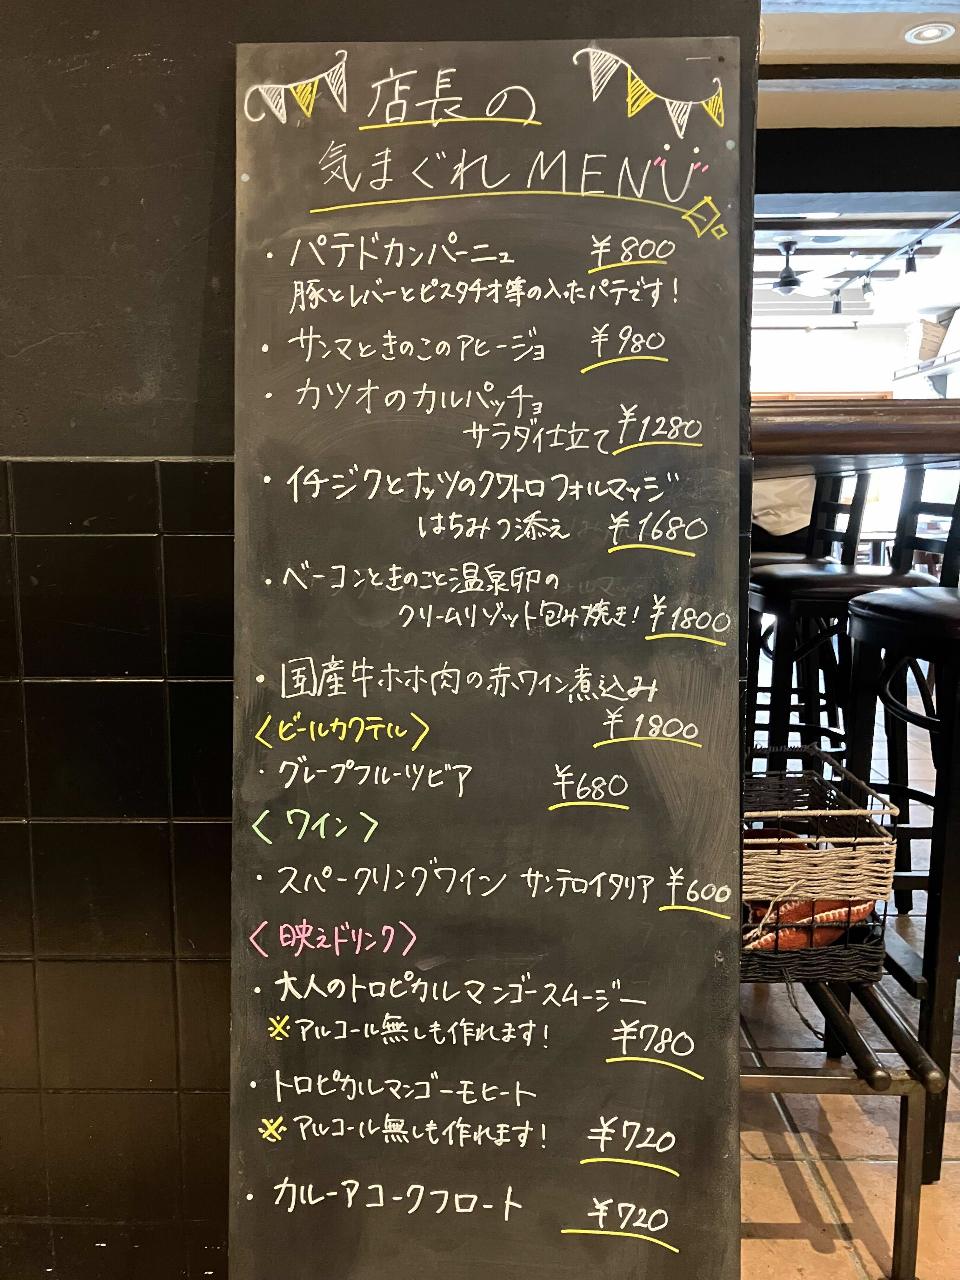 店長の
気まぐれMENU
・パテドカンパーニュ ¥800
豚とレバーとピスタチオ等の入ったパテです!
・サンマときのこのアヒージョ ¥980
・カツオのカルパッチョ
サラダ仕立て ¥1280
・イチジクとナッツのクワトロフォルマッジ
はちみつ添え ¥1680
・ベーコンときのこと温泉卵の
クリームリゾット包み焼き! ¥1800
・国産牛ホホ肉の赤ワイン煮込み
¥1800
〈ビールカクテル〉
・グレープフルーツビア ¥680
〈ワイン〉
・スパークリングワイン サンテロイタリア ¥600
〈映えドリンク〉
・大人のトロピカルマンゴースムージー
※アルコール無しも作れます! ¥780
・トロピカルマンゴーモヒート
※アルコール無しも作れます! ¥720
・カルーアコークフロート ¥720